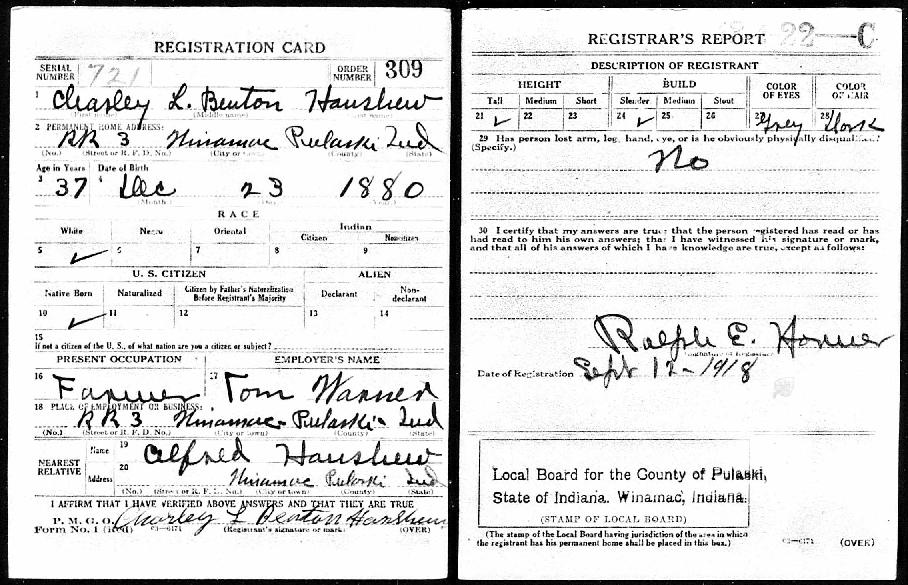 REGISTRATION CARD
SERIAL NUMBER 721 ORDER NUMBER 309
1 Charley L. Benton Hanshew
(First name) (Middle name)
2 PERMANENT HOME ADDRESS:
RR 3 Winamac Pulaski Ind
(No.) (Street or R. F. D. No.) (City or town) (County) (State)
Age in Years Date of Birth
3 37 4 Dec 23 1880
(Month.) (Day.) (Year.)
RACE
White Negro Oriental Indian
Citizen Noncitizen
5 ✓ 6 7 8 9
U. S. CITIZEN ALIEN
Native Born Naturalized Citizen by Father's Naturalization Before Registrant's Majority Declarant Non-declarant
10 ✓ 11 12 13 14
15
If not a citizen of the U. S., of what nation are you a citizen or subject?
PRESENT OCCUPATION EMPLOYER'S NAME
16 Farmer 17 Tom Warner
18 PLACE OF EMPLOYMENT OR BUSINESS:
RR 3 Winamac Pulaski Ind
(No.) (Street or R. F. D. No.) (City or town) (County) (State)
NEAREST RELATIVE Name 19 Alfred Hanshew
Address 20 Winamac Pulaski Ind
(No.) (Street or R. F. D. No.) (City or town) (County) (State)
I AFFIRM THAT I HAVE VERIFIED ABOVE ANSWERS AND THAT THEY ARE TRUE
P. M. G. O. Charley L Benton Hanshew
Form No. 1 (Red) (Registrant's signature or mark) (OVER)
22—C
REGISTRAR'S REPORT
DESCRIPTION OF REGISTRANT
HEIGHT BUILD COLOR OF EYES COLOR OF HAIR
Tall Medium Short Slender Medium Stout
21 ✓ 22 23 24 ✓ 25 26 27 Grey 28 Dark
29 Has person lost arm, leg, hand, eye, or is he obviously physically disqualified?
(Specify.) No
30 I certify that my answers are true; that the person registered has read or has
had read to him his own answers; that I have witnessed his signature or mark,
and that all of his answers of which I have knowledge are true, except as follows:
Ralph E. Horner
(Signature of Registrar)
Date of Registration Sept 12-1918
Local Board for the County of Pulaski,
State of Indiana. Winamac, Indiana.
(STAMP OF LOCAL BOARD)
(The stamp of the Local Board having jurisdiction of the area in which
the registrant has his permanent home shall be placed in this box.)
(OVER)